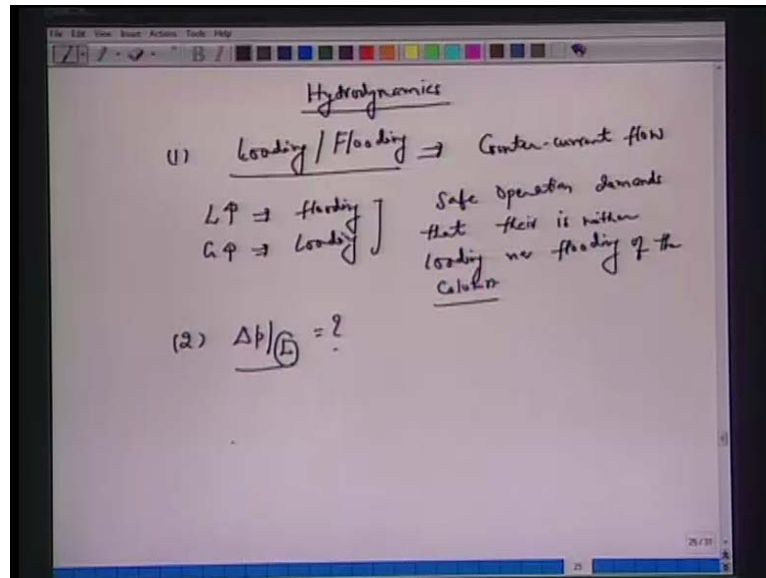 File Edit View Insert Actions Tools Help
Hydrodynamics
(1) Loading / Flooding ⇒ Counter-current flow
L↑ ⇒ flooding
G↑ ⇒ Loading
Safe operation demands
that their is neither
loading nor flooding of the
Column
(2) Δp/L = ?
25/31
25